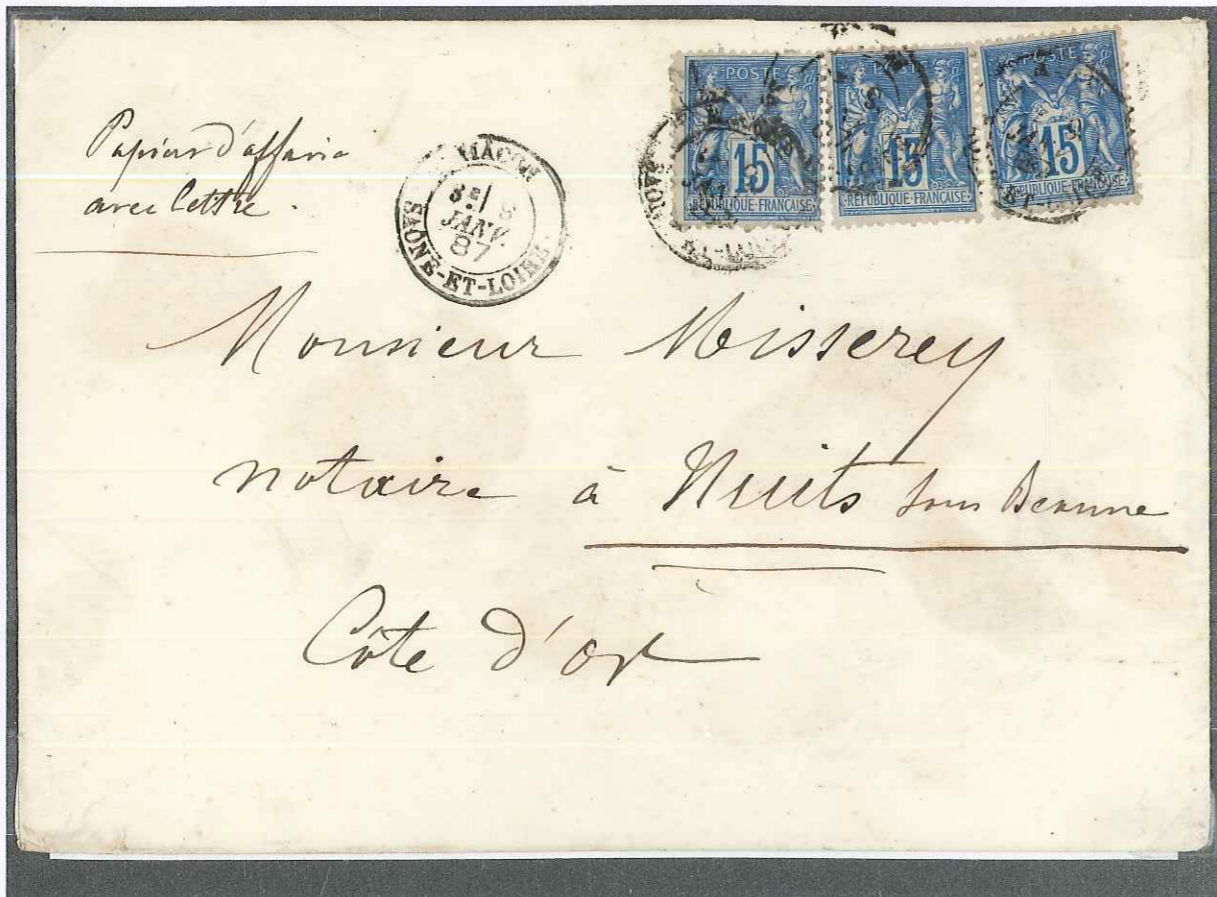 Papiers d'affaire
avec lettre.
MACON
3E/ 8
JANV.
87
SAÔNE-ET-LOIRE
POSTE
15
RÉPUBLIQUE FRANÇAISE
POSTE
15
RÉPUBLIQUE FRANÇAISE
POSTE
15
RÉPUBLIQUE FRANÇAISE
Monsieur Misserey
notaire à Nuits sous Beaune
Côte d'or